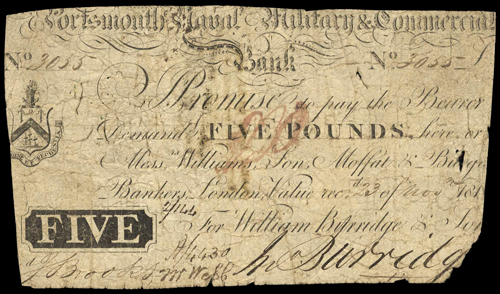 Portsmouth Naval Military & Commercial
Bank
No 3055 No 3055
I Promise to pay the Bearer
Demand FIVE POUNDS, here or
Messrs Williams, Son, Moffat & Burge
Bankers, London, Value recd 23 of Nov 181
For William Burridge & Son
FIVE
J Brooks Mr West Jno Burridge